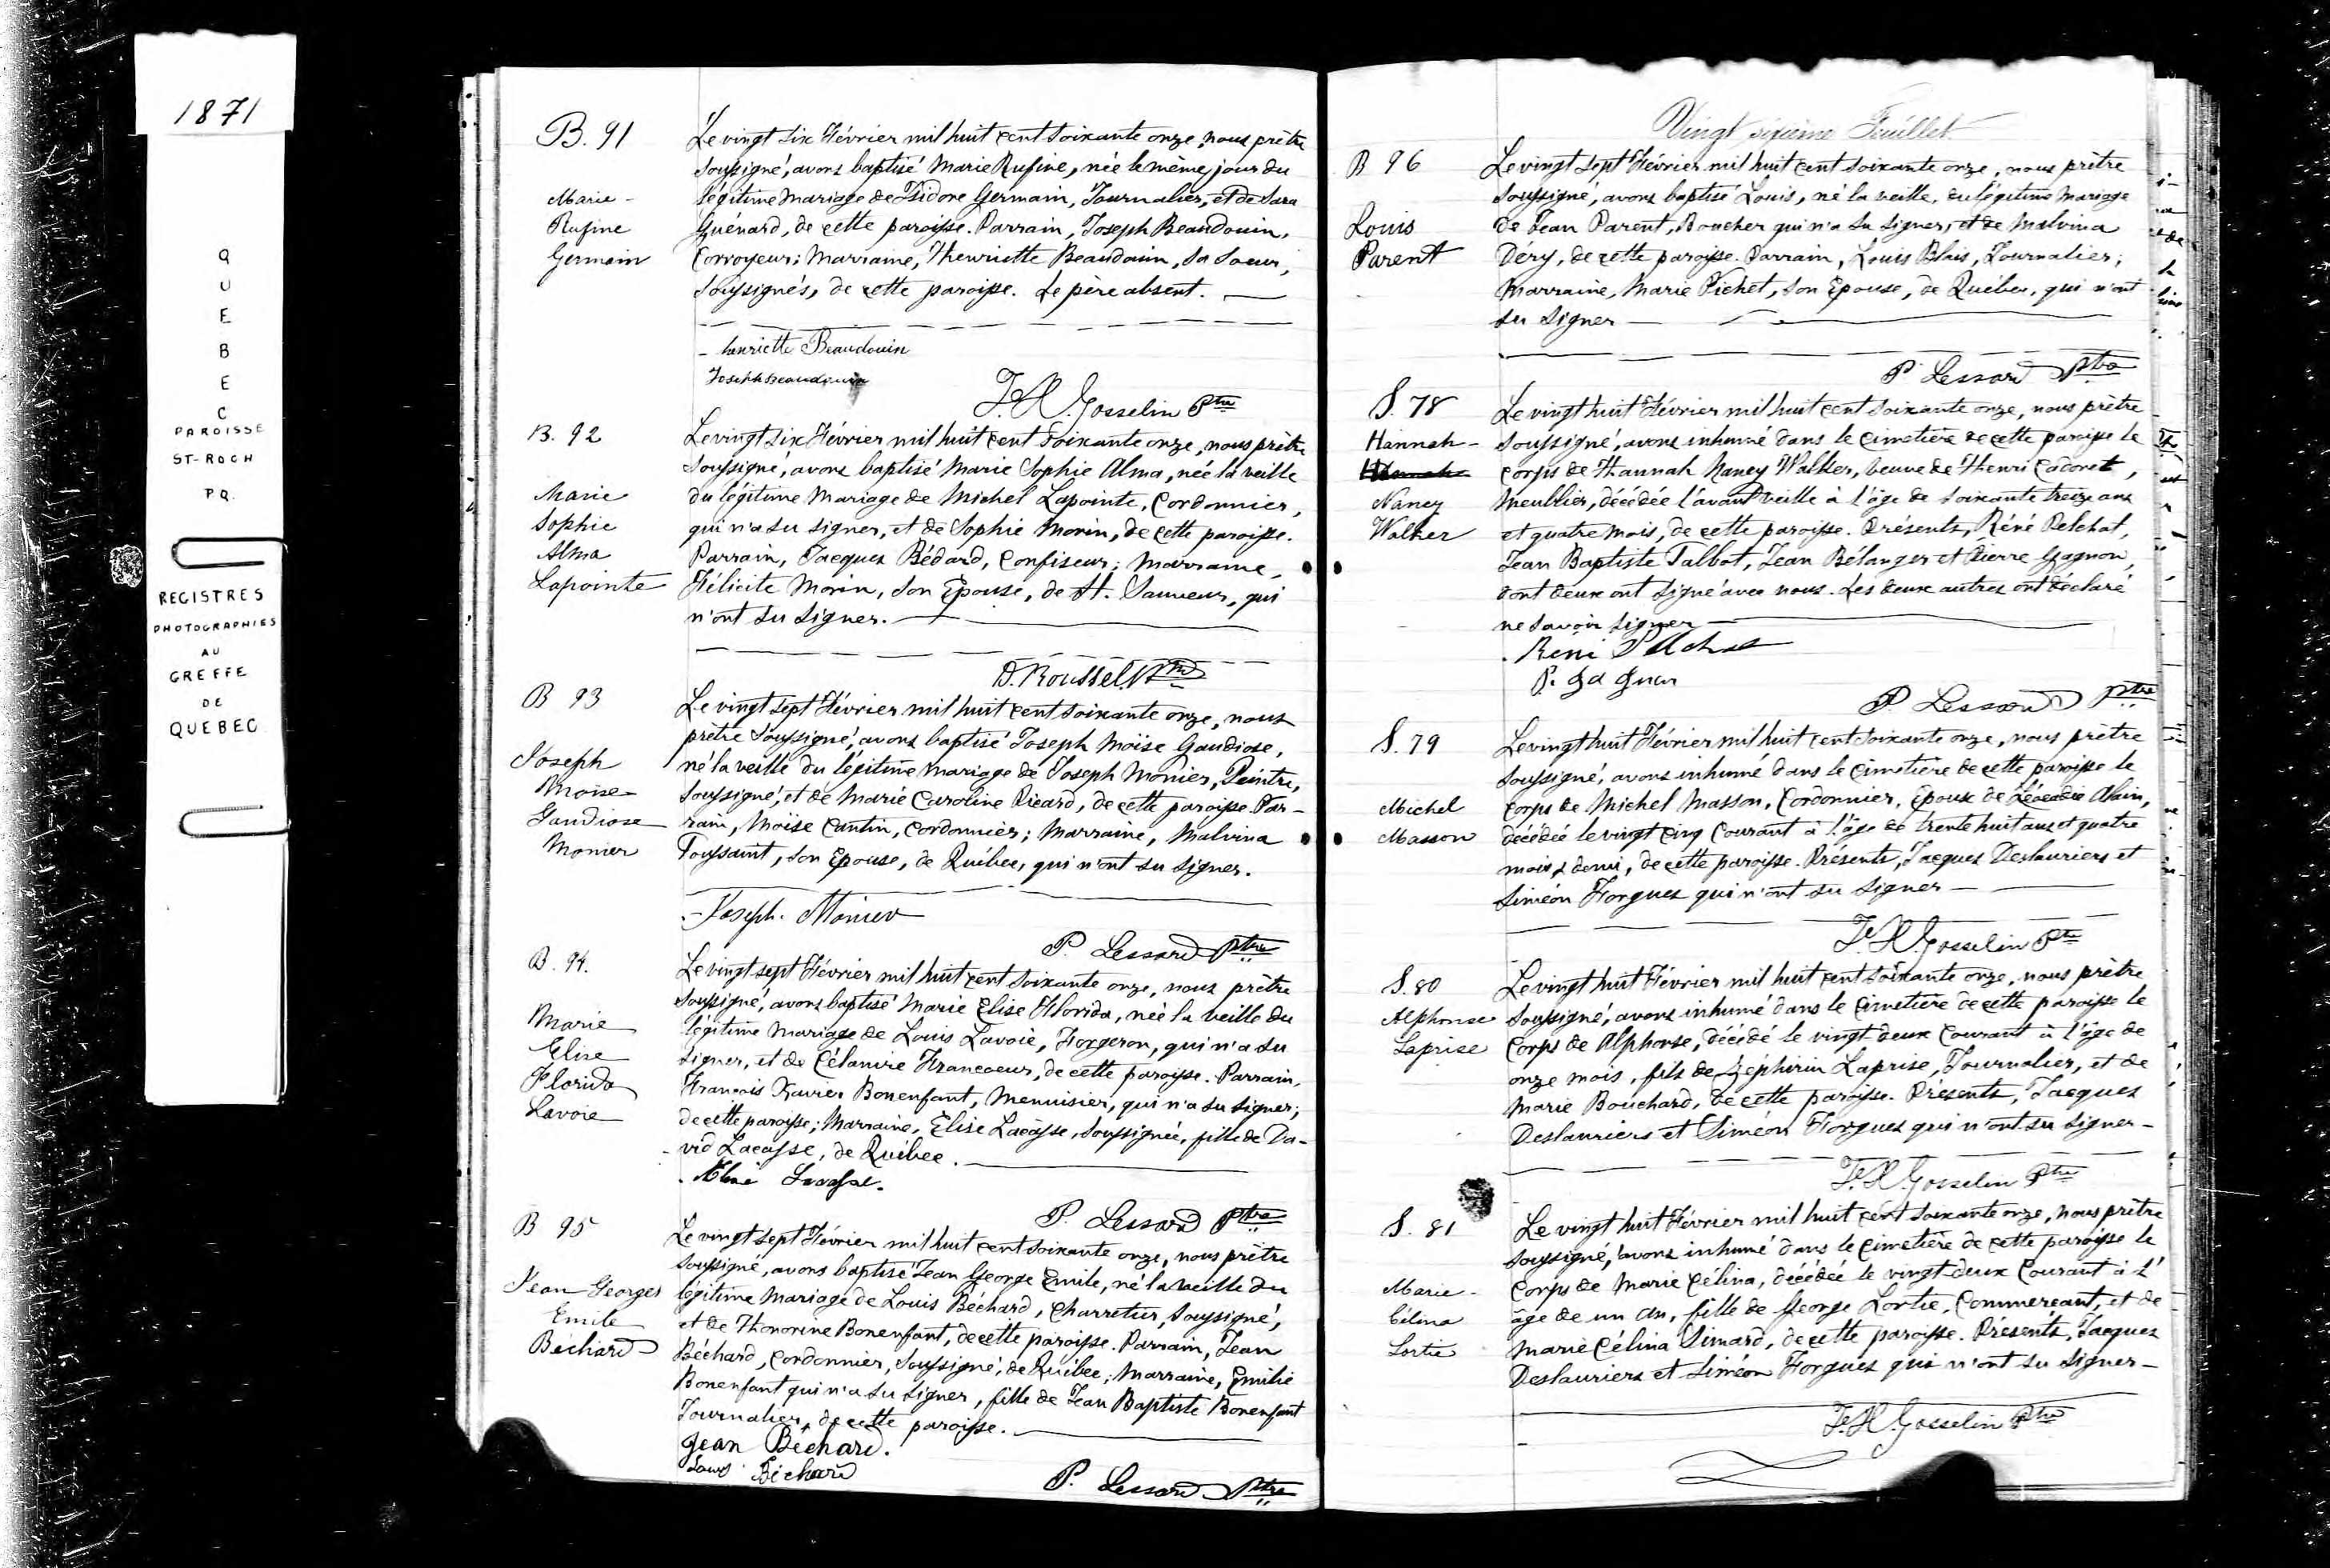 1871
QUEBEC
PAROISSE
ST-ROCH
P.Q.
REGISTRES
PHOTOGRAPHIES
AU
GREFFE
DE
QUEBEC
B. 91
Marie -
Rufine
Germain
Le vingt six Février mil huit cent soixante onze, nous prêtre
soussigné, avons baptisé Marie Rufine, née le même jour du
légitime mariage de Isidore Germain, Journalier, et de Sara
Guénard, de cette paroisse. Parrain, Joseph Beaudouin,
Corroyeur; Marraine, Henriette Beaudouin, sa soeur,
soussignés, de cette paroisse. Le père absent.
henriette Beaudouin
Joseph Beaudouin
F. H. Gosselin Ptre
B. 92
Marie
Sophie
Alma
Lapointe
Le vingt six Février mil huit cent soixante onze, nous prêtre
soussigné, avons baptisé Marie Sophie Alma, née la veille
du légitime mariage de Michel Lapointe, Cordonnier,
qui n'a su signer, et de Sophie Morin, de cette paroisse.
Parrain, Jacques Bédard, Confiseur; Marraine,
Félicite Morin, son Epouse, de St. Sauveur, qui
n'ont su signer.
D. Roussel Ptre
B 93
Joseph
Moise
Gaudiose
Monier
Le vingt sept Février mil huit cent soixante onze, nous
prêtre soussigné, avons baptisé Joseph Moïse Gaudiose,
né la veille du légitime mariage de Joseph Monier, Peintre,
soussigné, et de Marie Caroline Picard, de cette paroisse. Par-
rain, Moïse Cantin, Cordonnier; Marraine, Malvina
Toussaint, son Epouse, de Québec, qui n'ont su signer.
Joseph. Monier
P. Lessard Ptre
B. 94.
Marie
Elise
Florida
Lavoie
Le vingt sept Février mil huit cent soixante onze, nous prêtre
soussigné, avons baptisé Marie Elise Florida, née la veille du
légitime mariage de Louis Lavoie, Forgeron, qui n'a su
signer, et de Célanire Francoeur, de cette paroisse. Parrain,
François Xavier Bonenfant, Menuisier, qui n'a su signer,
de cette paroisse; Marraine, Elise Lacasse, soussignée, fille de Da-
vid Lacasse, de Québec.
Elise Lacasse.
P. Lessard Ptre
B 95
Jean Georges
Emile
Béchard
Le vingt sept Février mil huit cent soixante onze, nous prêtre
soussigné, avons baptisé Jean George Emile, né la veille du
légitime mariage de Louis Béchard, Charretier, soussigné,
et de Honorine Bonenfant, de cette paroisse. Parrain, Jean
Béchard, Cordonnier, soussigné, de Québec; Marraine, Emilie
Bonenfant qui n'a su signer, fille de Jean Baptiste Bonenfant
Journalier, de cette paroisse.
Jean Béchard.
Louis Béchard
P. Lessard Ptre
Vingt sixième Feuillet
B 96
Louis
Parent
Le vingt sept Février mil huit cent soixante onze, nous prêtre
soussigné, avons baptisé Louis, né la veille, du légitime mariage
de Jean Parent, Boucher qui n'a su signer, et de Malvina
Déry, de cette paroisse. Parrain, Louis Blais, Journalier;
Marraine, Marie Pichet, son Epouse, de Québec, qui n'ont
su signer
P. Lessard Ptre
S. 78
Hannah -
Nancy
Walker
Le vingt huit Février mil huit cent soixante onze, nous prêtre
soussigné, avons inhumé dans le cimetière de cette paroisse le
corps de Hannah Nancy Walker, veuve de Henri Cadoret,
Meublier, décédée l'avant veille à l'âge de soixante treize ans
et quatre mois, de cette paroisse. Présents, Réné Pelchat,
Jean Baptiste Talbot, Jean Bélanger et Pierre Gagnon,
dont deux ont signé avec nous. Les deux autres ont déclaré
ne savoir signer
René Pelchat
P. Gagnon
P. Lessard Ptre
S. 79
Michel
Masson
Le vingt huit Février mil huit cent soixante onze, nous prêtre
soussigné, avons inhumé dans le cimetière de cette paroisse le
corps de Michel Masson, Cordonnier, Epoux de Léocadie Alain,
décédée le vingt cinq courant à l'âge de trente huit ans et quatre
mois & demi, de cette paroisse. Présents, Jacques Deslauriers et
Siméon Forgues qui n'ont su signer
F. H. Gosselin Ptre
S. 80
Alphonse
Laprise
Le vingt huit Février mil huit cent soixante onze, nous prêtre
soussigné, avons inhumé dans le cimetière de cette paroisse le
corps de Alphonse, décédé le vingt deux courant à l'âge de
onze mois, fils de Zéphirin Laprise, Journalier, et de
Marie Bouchard, de cette paroisse. Présents, Jacques
Deslauriers et Siméon Forgues qui n'ont su signer -
F. H. Gosselin Ptre
S. 81
Marie -
Célina
Lortie
Le vingt huit Février mil huit cent soixante onze, nous prêtre
soussigné, avons inhumé dans le cimetière de cette paroisse le
corps de Marie Célina, décédée le vingt deux courant à l'
âge de un an, fille de George Lortie, Commerçant, et de
Marie Célina Simard, de cette paroisse. Présents, Jacques
Deslauriers et Siméon Forgues qui n'ont su signer -
F. H. Gosselin Ptre